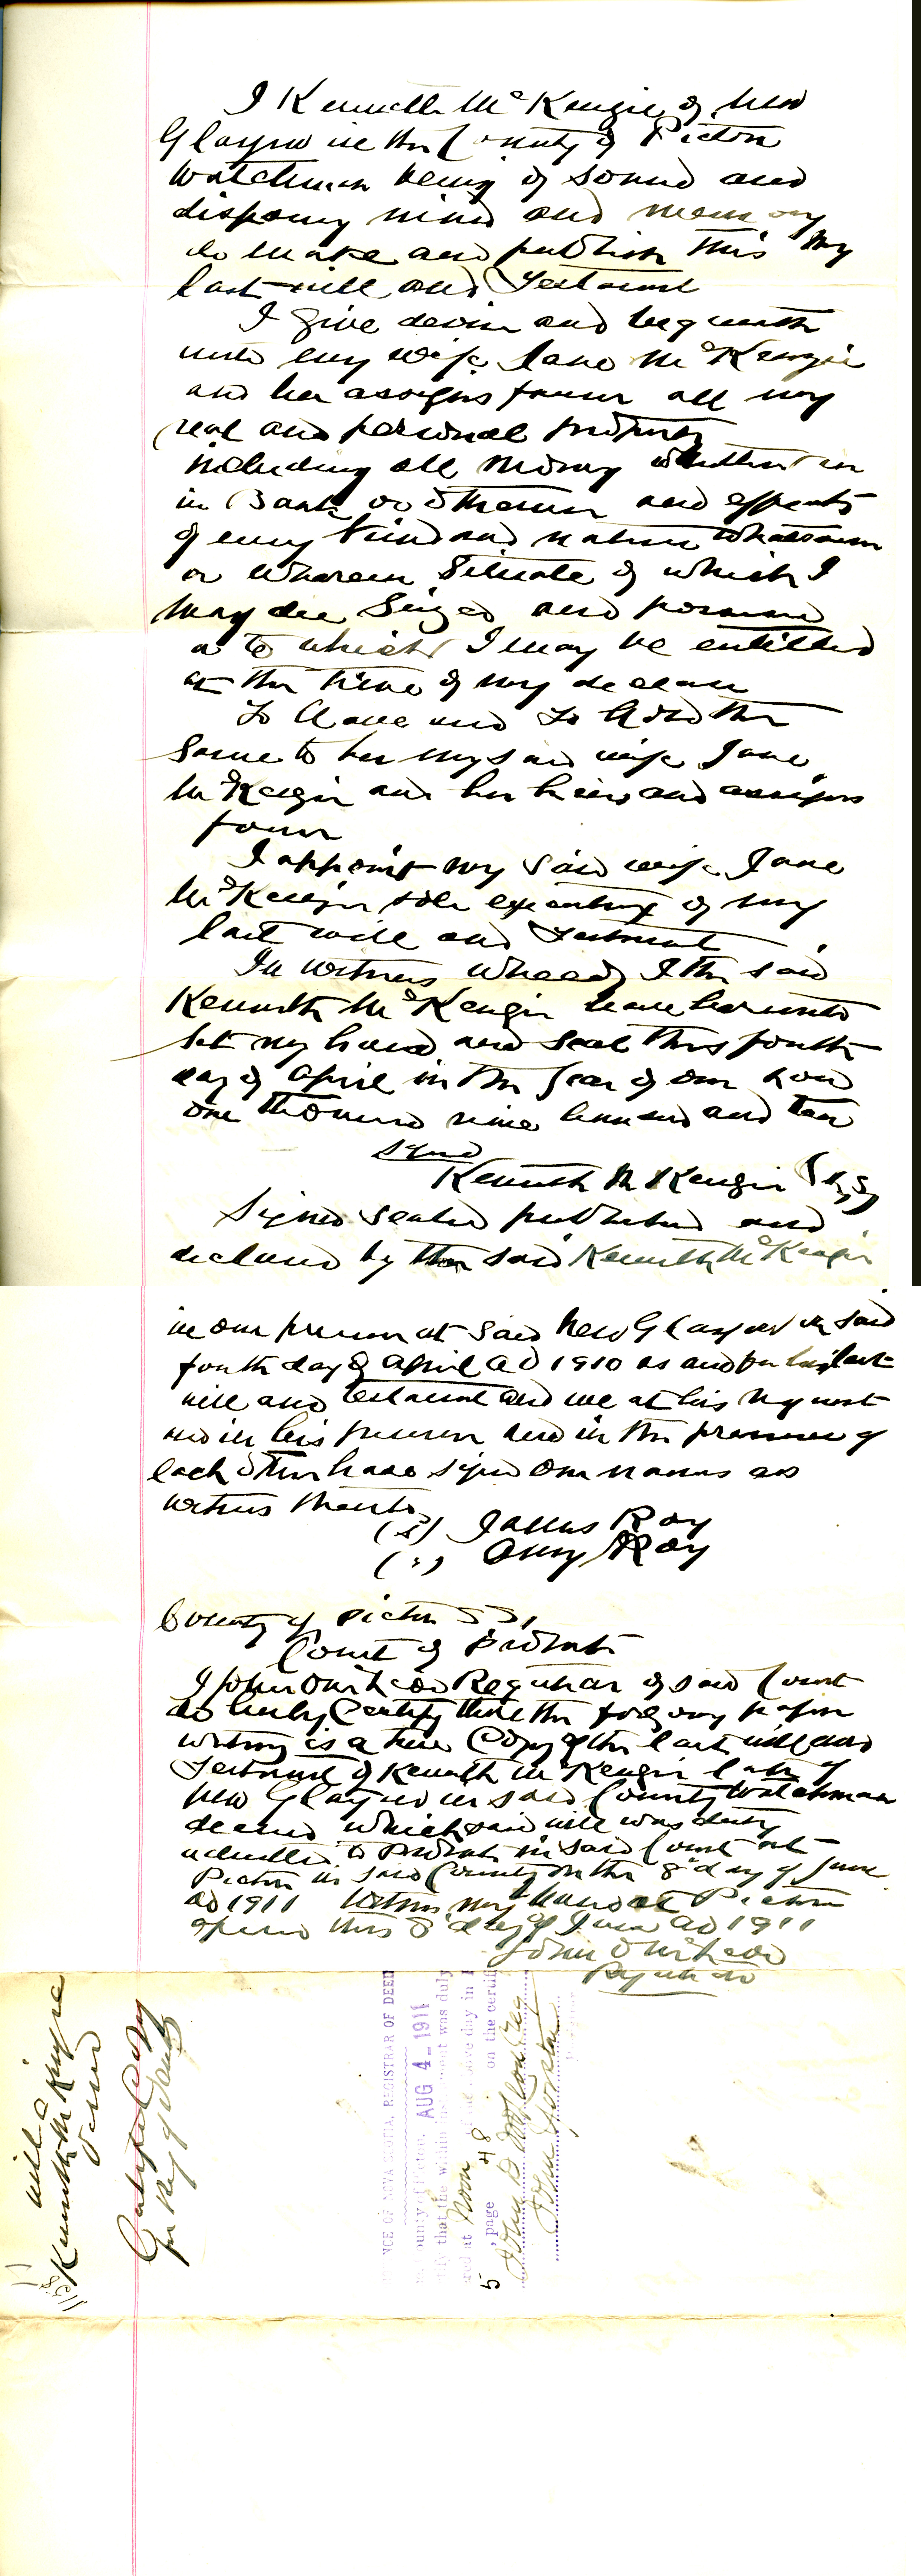 I Kenneth McKenzie of New
Glasgow in the County of Pictou
Watchman being of sound and
disposing mind and memory
do make and publish this my
last will and Testament
I give devise and bequeath
unto my wife Jane McKenzie
and her assigns forever all my
real and personal property
including all money whether in
in Bank or otherwise and effects
of every kind and nature whatsoever
or wherein Situate of which I
may die Seized and possessed
or to which I may be entitled
at the time of my decease
To Have and To Hold the
Same to her my said wife Jane
McKenzie and her heirs and assigns
forever
I appoint my said wife Jane
McKenzie sole executrix of my
last will and Testament
In witness whereof I the said
Kenneth McKenzie have hereunto
set my hand and seal this fourth
day of April in the year of our Lord
one thousand nine hundred and ten
Signed
Kenneth McKenzie
Signed Sealed published and
declared by the said Kenneth McKenzie
in our presence at said New Glasgow on said
fourth day of April AD 1910 as and for his last
will and Testament and we at his request
and in his presence and in the presence of
each other have signed our names as
witness thereto
(s) James Roy
(s) Amy Roy
County of Pictou SS,
Court of Probate
I John Registrar of said Court
do hereby Certify that the foregoing paper
writing is a true Copy of the last will and
Testament of Kenneth McKenzie late of
New Glasgow in said County Watchman
deceased which said will was duly
admitted to Probate in said Court at
Pictou in said County on the 8th day of June
AD 1911 Witness my hand at Pictou
this 8th day of June AD 1911
John
Registrar
Will of
Kenneth McKenzie
Certified Copy
for Reg of Deeds
NCE OF NOVA SCOTIA, REGISTRAR OF DEED
ounty of Pictou, AUG 4 - 1911
that the within instrument was duly
at Noon day in
5 , page 48 on the certifi
John D
John